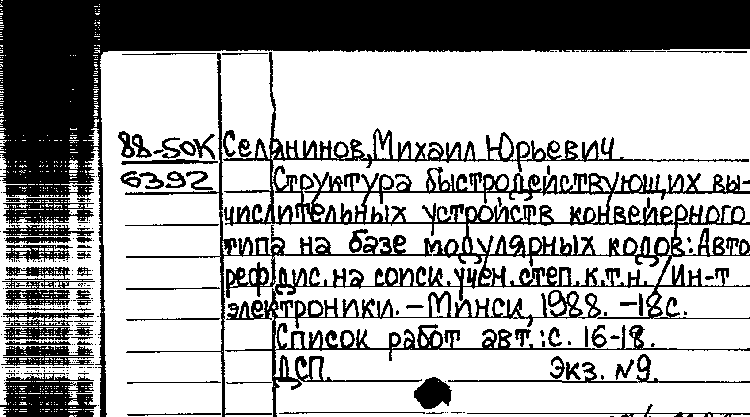 88-50К Селянинов, Михаил Юрьевич.
6392 Структура быстродействующих вы-
числительных устройств конвейерного
типа на базе модулярных кодов: Авто
реф. дис. на соиск. учен. степ. к.т.н. / Ин-т
электроники. – Минск, 1988. – 18с.
Список работ авт.: с. 16-18.
ДСП. Экз. №9.